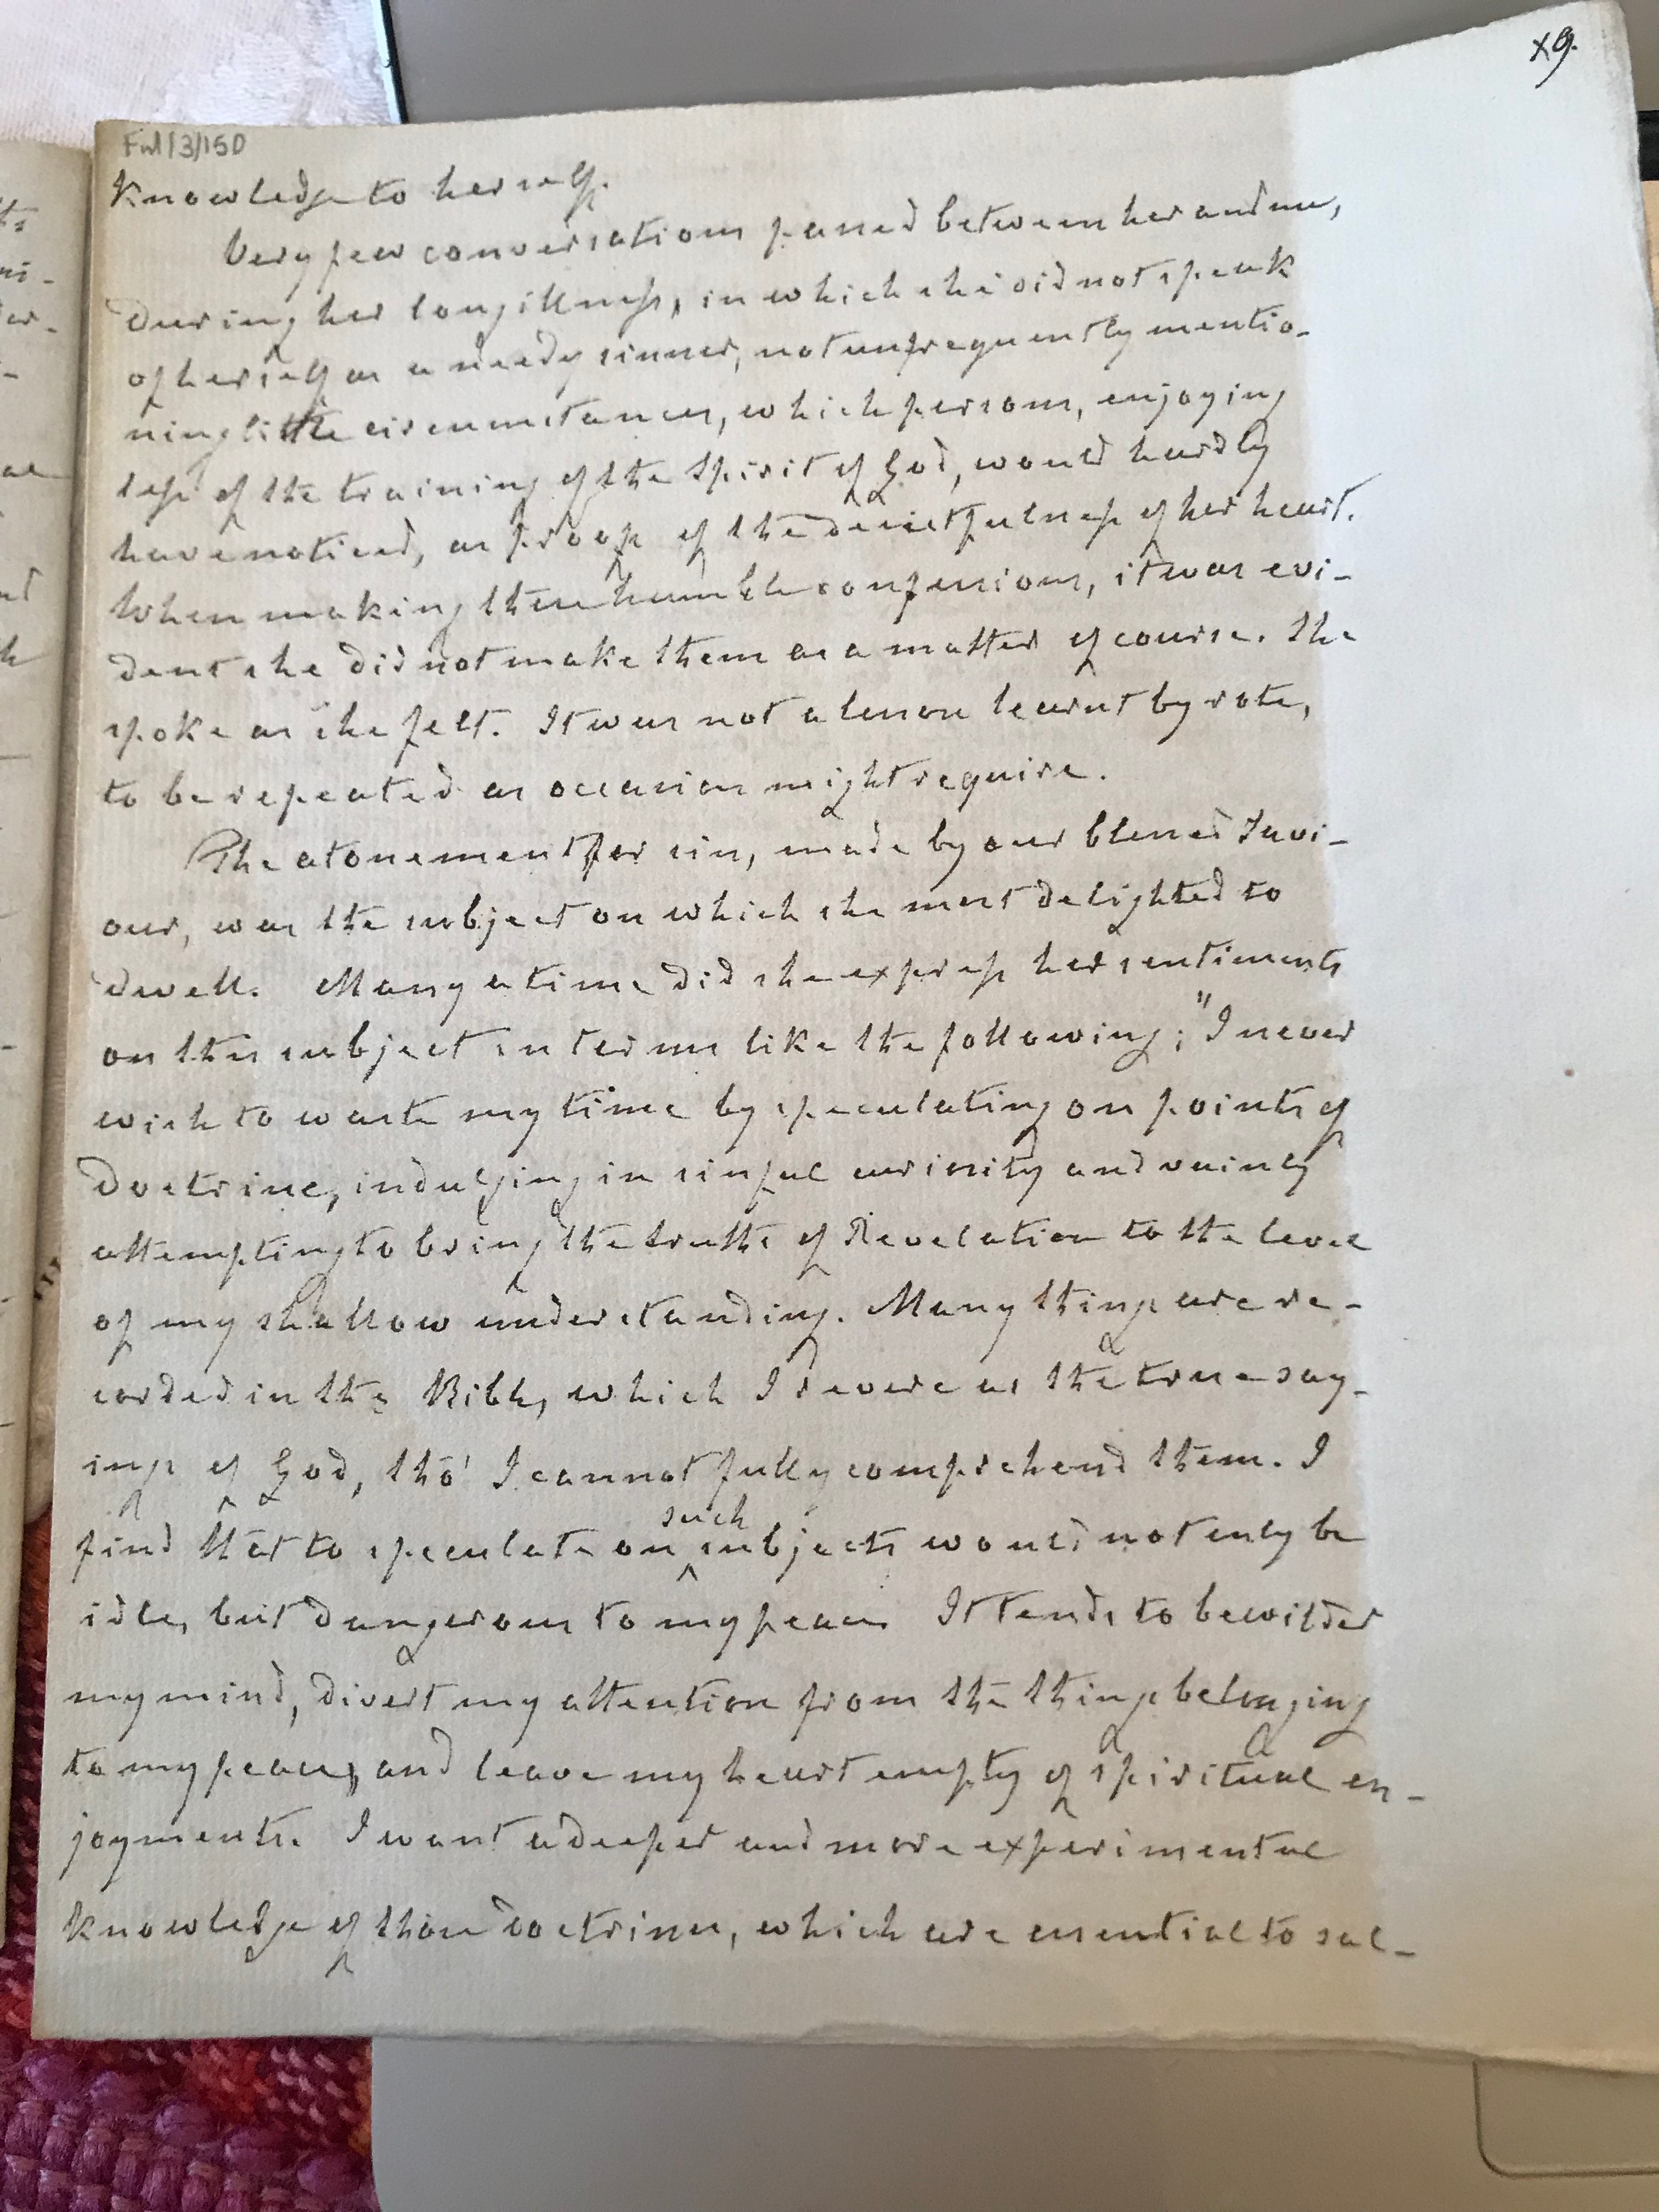 x9.
Ful/3/150
Knowledge to herself.
Very few conversations passed between her and me,
during her long illness, in which she did not speak
of herself as a needy sinner, not unfrequently mentio-
ning little circumstances, which persons, enjoying
less of the training of the Spirit of God, would hardly
have noticed, as proofs of the deceitfulness of her heart.
When making these humble confessions, it was evi-
dent she did not make them as a matter of course. She
spoke as she felt. It was not a lesson learnt by rote,
to be repeated as occasion might require.
The atonement for sin, made by our blessed Savi-
our, was the subject on which she most delighted to
dwell. Many a time did she express her sentiments
on this subject in terms like the following; "I never
wish to waste my time by speculating on points of
doctrine, indulging in sinful curiosity and vainly
attempting to bring the truths of Revelation to the level
of my shallow understanding. Many things are re-
corded in the Bible, which I revere as the true say-
ings of God, tho' I cannot fully comprehend them. I
find that to speculate on such subjects would not only be
idle, but dangerous to my peace. It tends to bewilder
my mind, divert my attention from the things belonging
to my peace, and leave my heart empty of spiritual en-
joyments. I want a deeper and more experimental
knowledge of those doctrines, which are essential to sal-